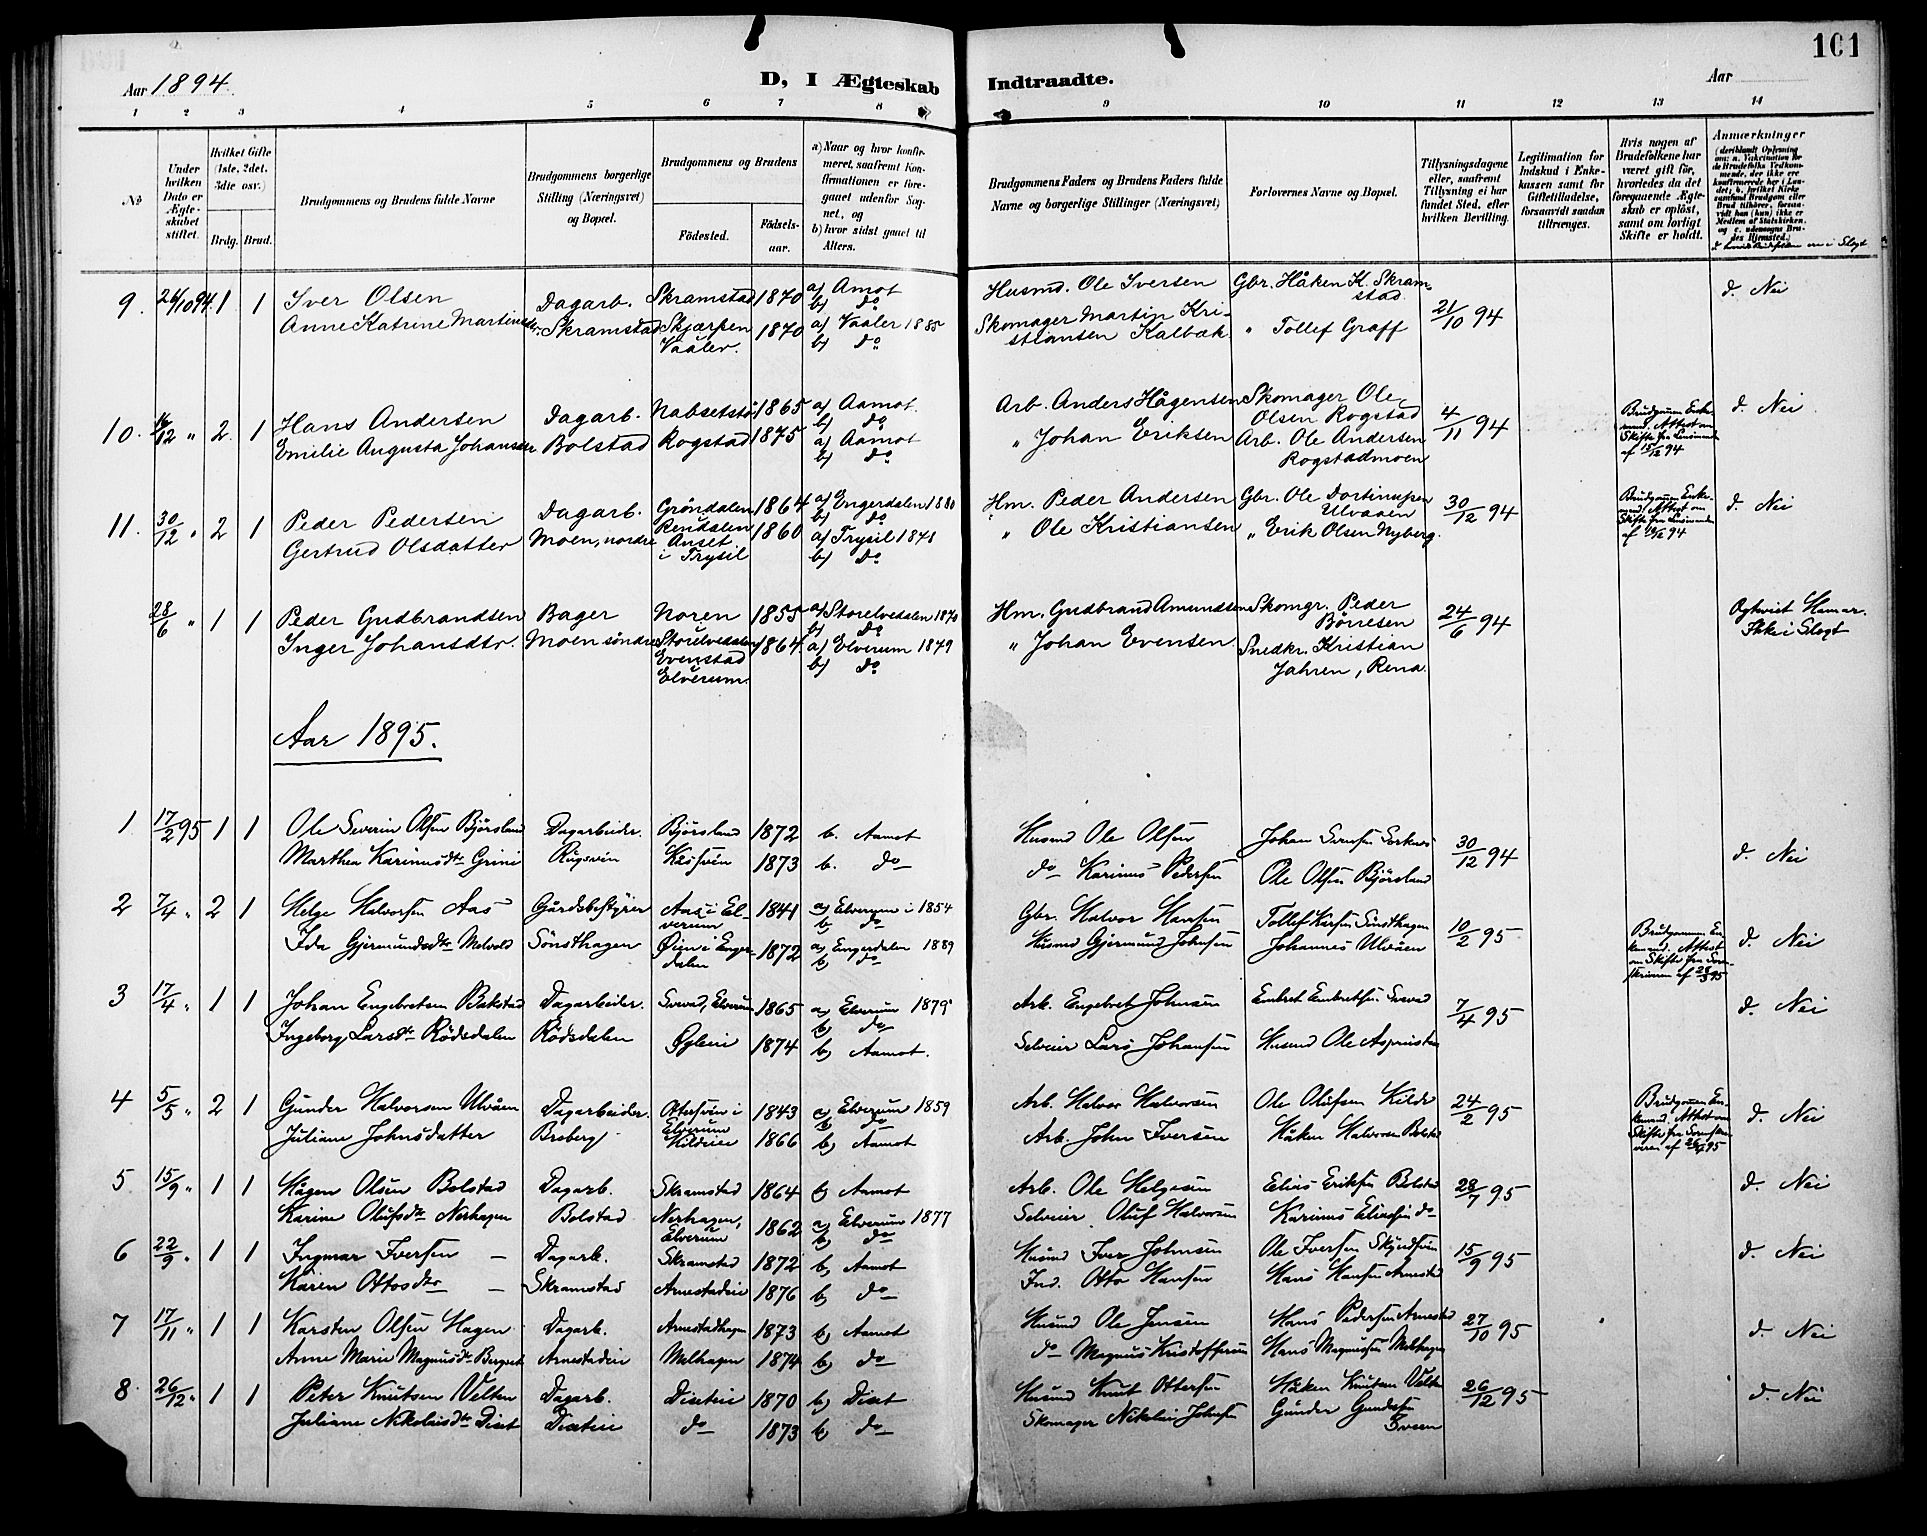 101
Aar 1894.
D, I Ægteskab Indtraadte.
Aar
1 2 3 4 5 6 7 8 9 10 11 12 13 14
No
Under hvilken Dato er Ægteskabet stiftet.
Hvilket Gifte (1ste, 2det, 3dte osv.)
Brdg. Brud.
Brudgommens og Brudens fulde Navne
Brudgommens borgerlige Stilling (Næringsvei) og Bopæl.
Brudgommens og Brudens
Fødested. Fødselsaar.
a) Naar og hvor konfirmeret, saafremt Konfirmationen er foregaaet udenfor Sognet, og
b) hvor sidst gaaet til Alters.
Brudgommens Faders og Brudens Faders fulde Navne og borgerlige Stillinger (Næringsvei)
Forlovernes Navne og Bopæl.
Tillysningsdagene eller, saafremt Tillysning ei har fundet Sted, efter hvilken Bevilling.
Legitimation for Indskud i Enkekassen samt for Giftetilladelse, forsaavidt saadan tiltrænges.
Hvis nogen af Brudefolkene har været gift før, hvorledes da det foregaaende Ægteskab er opløst, samt om lovligt Skifte er holdt.
Anmærkninger
9. 26/10 94. 1 1 Iver Olsen Dagarb. Skramstad 1870 a) Amot b) do Husmd. Ole Iversen Gbr. Håken K. Skramstad 21/10 94 d. Nei
Anne Katrine Martinsdtr. Skramstad Skjærpen Vaaler. 1870 a) Vaaler 1885 b) do Skomager Martin Kristiansen Kalbæk " Tollef Graff
10. 16/12 " 2 1 Hans Andersen Dagarb. Nabsetstø 1865 a) Aamot. b) do Arb. Anders Hågensen Skomager Ole Olsen Rogstad 4/11 94 Brudgommen Enkemand. Attest om Skifte fra af 15/12 94 d. Nei
Emilie Augusta Johansen Bolstad Rogstad 1875 a) Aamot b) do " Johan Eriksen Arb. Ole Andersen Rogstadmoen
11. 30/12 " 2 1 Peder Pedersen Dagarb. Grøndalen Rendalen 1864 a) Engerdalen 1880 b) do Hm. Peder Andersen Gbr. Ole Ulvaaen 30/12 94 Brudgommen Enkemand. Attest om Skifte fra af 94 d. Nei
Gertrud Olsdatter Moen, nordre Anset i Trysil 1860 a) Trysil b) do " Ole Kristiansen " Erik Olsen Nyberg.
28/6 " 1 1 Peder Gudbrandsen Bager Noren Storelvedalen 1855 a) Storelvedalen 1870 b) do Hm. Gudbrand Amundsen Skomgr. Peder Børresen 24/6 94 Hamar. Ikke i Slegt
Inger Johansdtr. Moen søndre Evenstad Elverum. 1864. a) Elverum 1879 b) do " Johan Evensen Snedkr. Kristian Jahren, Rena
Aar 1895.
1 17/2 95 1 1 Ole Severin Olsen Bjørsland Dagarbeider. Bjørsland 1872 b. Aamot Husmd Ole Olsen Johan 30/12 94 d. Nei
Marthea Karinusdtr Grini 1873 b. do do Karinus Pedersen Ole Olsen Bjørsland
2 7/4 " 2 1 Helge Halvorsen Aas Gårdsbestyrer Aas i Elverum 1841 a) Elverum i 1854 b) do Gbr. Halvor Hansen Tollef Sønsthagen 10/2 95 Brudgommen Enkemand. Attest om Skifte fra af 28/3 95 d. Nei
Ida Gjermundsdtr Melvold Sønsthagen Øien i Engerdalen 1872 a) Engerdalen 1889 b) do Husmd Gjermund Johnsen Johannes Ulvåen
3 17/4 " 1 1 Johan Engebretsen Bakstad Dagarbeider. Elverum 1865 a) Elverum 1879 b) do Arb. Engebret Johnsen Embret Embretsen 7/4 95 d. Nei
Ingeborg Larsdtr Rødsdalen Rødsdalen 1874 b) Aamot. Selveier Lars Johansen Husmd Ole
4 5/5 " 2 1 Gunder Halvorsen Ulvåen Dagarbeider. i Elverum 1843 a) Elverum 1859 b) do Arb. Halvor Halvorsen Ole Olufsen Kilde 24/2 95 Brudgommen Enkemand. Attest om Skifte fra af 26/4 95 d. Nei
Juliane Johnsdatter Broberg 1866 b) Aamot Arb. John Iversen Håken Halvorsen Bolstad
5 15/9 " 1 1 Hågen Olsen Bolstad Dagarb. Skramstad 1864 b) Aamot Arb. Ole Helgesen Elias Eriksen Bolstad 28/7 95 d. Nei
Karine Olufsdtr Nerhagen Bolstad Nerhagen, Elverum 1862 a) Elverum 1877 b) do Selveier Oluf Halvorsen Karinus Eliassen do
6 22/9 " 1 1 Ingmar Iversen – Dagarb. Skramstad 1872 b) Aamot Husmd Iver Johnsen Ole Iversen 15/9 95 d. Nei
Karen Ottosdtr – Skramstad Arnestadeie 1876 b) do Ind. Otto Hansen Hans Hansen Arnestad
7 17/11 " 1 1 Karsten Olsen Hagen Dagarb. Arnestadhagen 1873 b) Aamot Husmd Ole Jensen Hans Pedersen Arnestad 27/10 95 d. Nei
Anne Marie Magnusdtr Arnestadeie Melhagen 1874 b) do do Magnus Kristoffersen Hans Magnussen Melhagen
8 26/12 " 1 1 Peter Knutsen Velten Dagarb. Diseteie 1870 b) Diset Husmd Knut Ottersen Håken Knutsen Velten 26/12 95 d. Nei
Juliane Nikolaisdtr Diset Diseteie do 1873 b) do Skomager Nikolai Johnsen Gunder Sveen